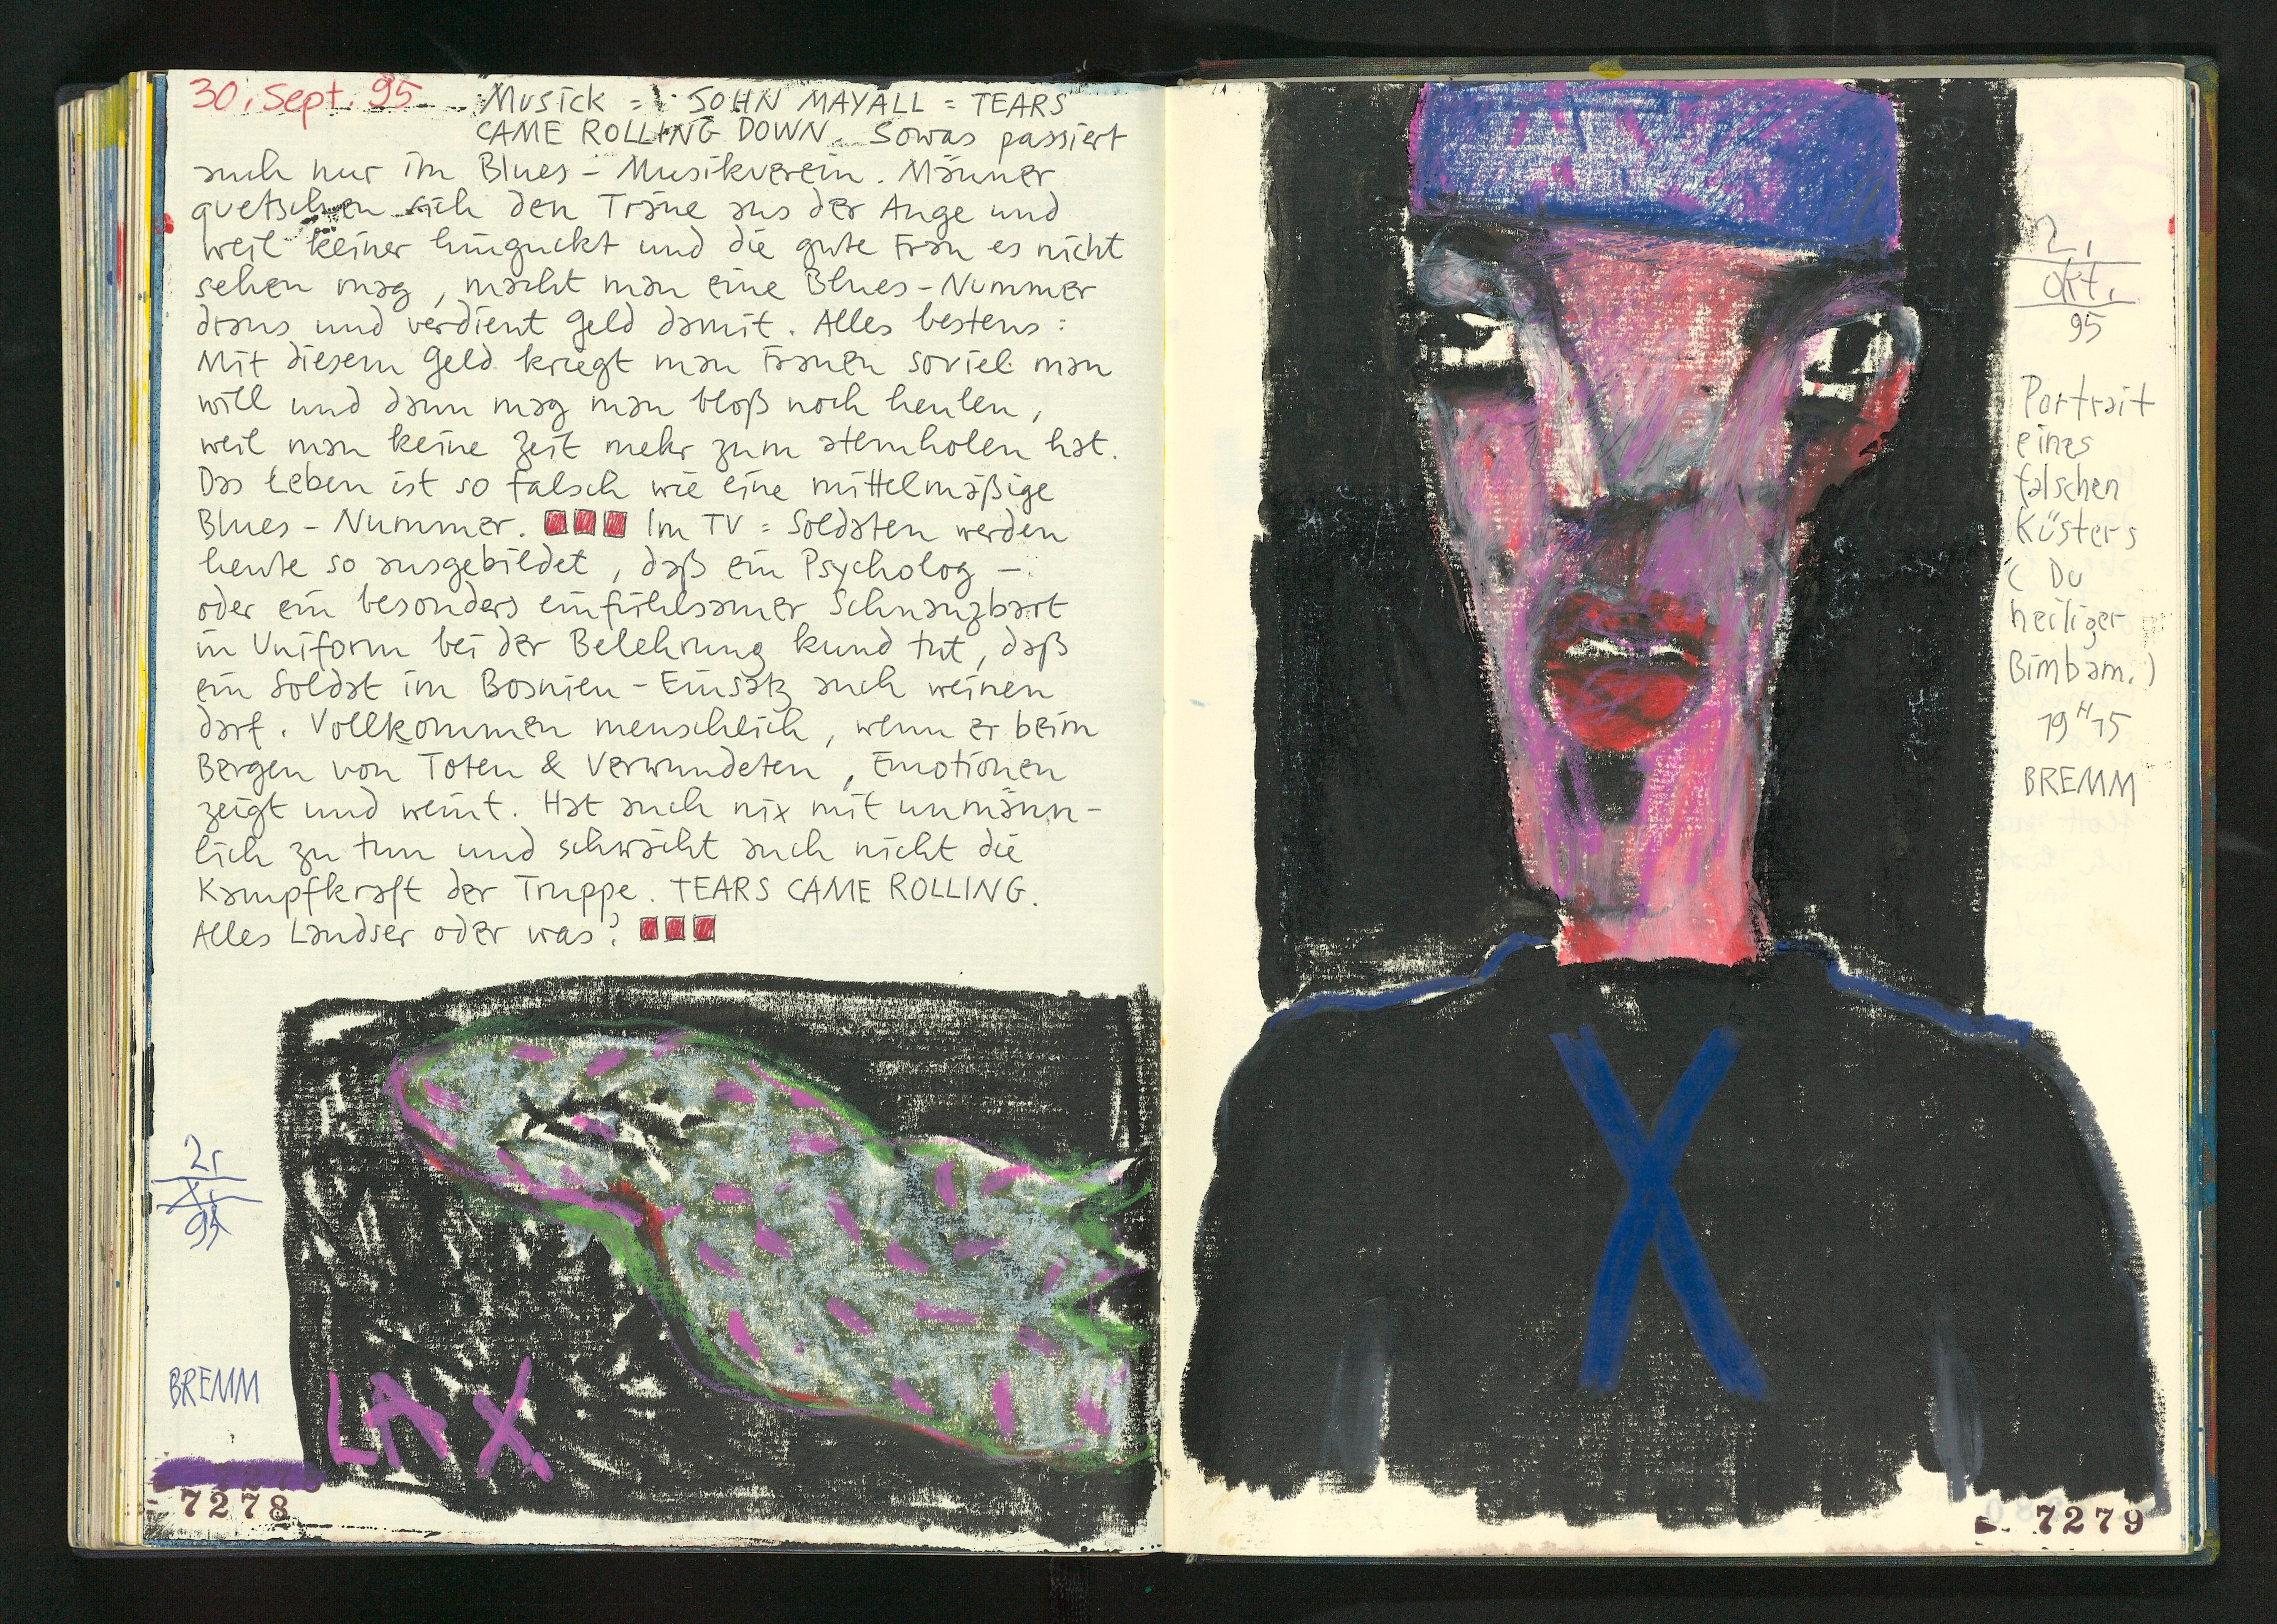 30. Sept. 95 Musick = JOHN MAYALL = TEARS
CAME ROLLING DOWN. Sowas passiert
auch nur im Blues - Musikverein. Männer
quetschen sich den Träne aus der Auge und
weil keiner hinguckt und die gute Frau es nicht
sehen mag, macht man eine Blues - Nummer
draus und verdient Geld damit. Alles bestens:
Mit diesem Geld kriegt man Frauen soviel man
will und dann mag man bloß noch heulen,
weil man keine Zeit mehr zum atemholen hat.
Das Leben ist so falsch wie eine mittelmäßige
Blues - Nummer. Im TV = Soldaten werden
heute so ausgebildet, daß ein Psycholog -
oder ein besonders einfühlsamer Schnauzbart
in Uniform bei der Belehrung kund tut, daß
ein Soldat im Bosnien - Einsatz auch weinen
darf. Vollkommen menschlich, wenn er beim
Bergen von Toten & Verwundeten, Emotionen
zeigt und weint. Hat auch nix mit unmänn-
lich zu tun und schwächt auch nicht die
Kampfkraft der Truppe. TEARS CAME ROLLING.
Alles Landser oder was?
2.
X.
95
BREMM
LAX
7278
2.
Okt.
95
Portrait
eines
falschen
Küsters
(Du
heiliger
Bimbam.)
19 H 15
BREMM
7279
X